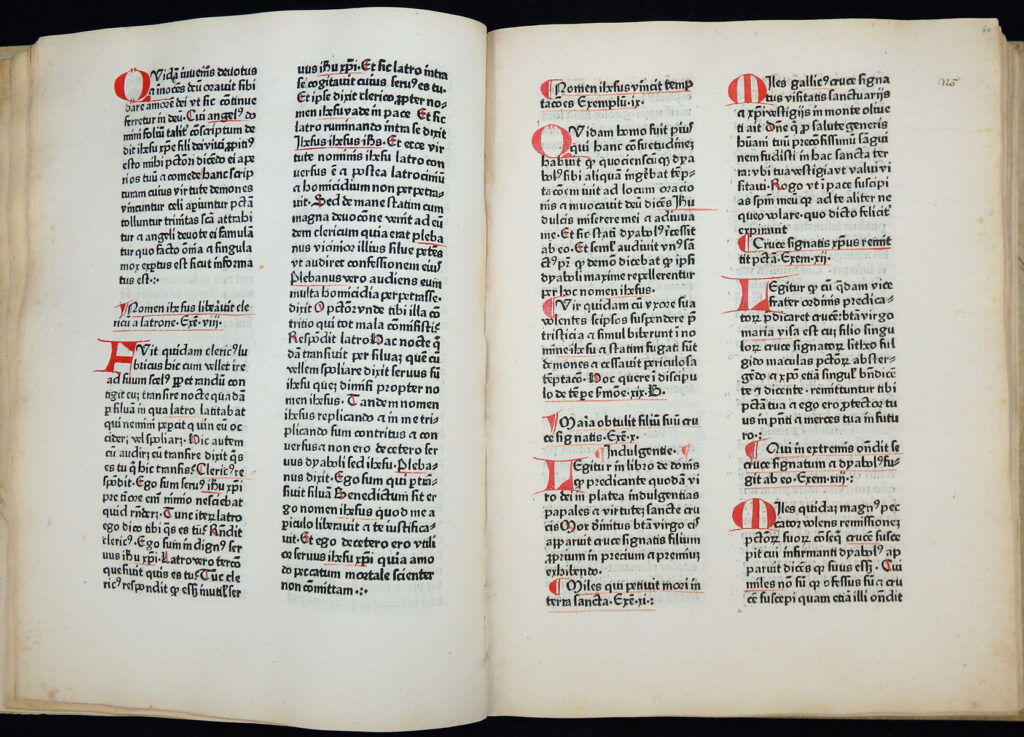 Quidā iuuenis deuotus
⁊ īnocēs deū orauit sibi
dare amorē dei vt sic cōtinue
ferretur in deū. Cui angelꝰ do
mini foliū talit̓ cōscriptum de
dit
esto mihi pctōri dicēdo ei ape
ri os tuū ⁊ comede hanc scrip
turam cuius virtute demones
vincuntur celi apiuntur pctā
tolluntur trinitas scā attrahi
tur ⁊ angeli deuote ei famulā
tur quo facto oīa ⁊ singula
mox exptus est sicut informa
tus est .:
Nomen ihesus liberauit cle
ricū a latrone. Exē. viij.
Fuit quidam clericꝰ lu
bricus hic cum vellet ire
ad suum
tigit eū transire nocte quadā
p siluā in qua latro latitabat
qui nemini pepcit quin eū oc
cider; vel spoliar; Hic autem
cū audir; eū transire dixit qͥs
es tu q̄ hic transis. Clericꝰ re
spōdit. Ego sum seruꝰ ihu xp̄i
pre timore enī nimio nesciebat
quid rn̄der; Tunc iterū latro
ego dico tibi qͥs es tu. Rn̄dit
clericꝰ. Ego sum indignꝰ ser
uus ihu xp̄i. Latro vero tercō
quesiuit quis es tu. Tūc cle
ricꝰ respondit ꝙ eēt inutilꝭ ser
uus ihu xp̄i. Et sic latro intra
se cogitauit cuius seruꝰ es tu.
Et ipse dixit clerico propter no
men ihesu vade in pace. Et sic
latro ruminando intra se dixit
Ihesus ihesus ihs. Et ecce vir
tute nominis ihesu latro con
uersus ē ⁊ postea latrociniū
⁊ homicidium non perpetra
uit. Sed de mane statim cum
magna deuocōne venit ad eū
dem clericum quia erat pleba
nus vicinior illius silue petēs
vt audiret confessionem eius
Plebanus vero audiens eum
multa homicidia perpetrasse.
dixit O pctōr vnde tibi illa cō
tritio qui tot mala cōmisisti.
Respōdit latro Hac nocte quē
dā transiuit per siluaꝫ quem cū
vellem spoliare dixit seruus sū
ihesu queꝫ dimisi propter no
men ihesus. Tandem nomen
ihesus replicando ⁊ in me tri
plicando sum contritus ⁊ con
uersus ⁊ non ero de cetero ser
uus dyaboli sed ihesu. Pleba
nus dixit. Ego sum qui ꝑtrā
siuit siluā Benedictum sit er
go nomen ihesus quod me a
periculo liberauit ⁊ te iustifica
uit. Et ego decetero ero vtili
or seruus ihesu xp̄i quia amo
do peccatum mortale scienter
non cōmittam .:.
Nomen ihesus vincit temp
tacōes Exemplū. ix.
Quidam homo fuit pius
qui hanc cōsuetudineꝫ
habuit ꝙ quocienscūqꝫ dya
bolꝰ sibi aliquam ingēbat tēp
tacōem iuit ad locum oracio
nis ⁊ inuocauit deū dicēs Ihu
dulcis miserere mei ⁊ adiuua
me. Et sic statī dyabolꝰ recessit
ab eo. Et semel audiuit vnꝰ sā
ctꝰ pr̄ ꝙ demō dicebat ꝙ ipsi
dyaboli maxime repellerentur
per hoc nomen ihesus.
Vir quidam cū vxore sua
volentes seipsos suspendere p
tristicia ⁊ simul biberunt ī no
mine ihesu ⁊ statim fugati sūt
demones ⁊ cessauit periculosa
tēptacō. Hoc quere ī discipu
lo de tēpe ẜmōe. xix. B.
Maria obtulit filiū suū cru
ce signatis. Exē. x.
Indulgentie.
Legitur in libro de donis
ꝙ predicante quodā vi
ro dei in platea indulgentias
papales ⁊ virtuteꝫ sancte cru
cis Mox btā virgo eis
apparuit cruce signatis filium
proprium in precium ⁊ premiū
exhibendo.
Miles qui petiuit mori in
terra sancta. Exē. xi .:
Miles gallicꝰ cruce signa
tus visitatis sanctuarijs
⁊ xp̄i vestigijs in monte oliue
ti ait Dn̄e qui pro salute generis
hūani tuū preciosissimū sangui
nem fudisti in hac sancta ter
ra: vbi tua vestigia vt valui vi
sitaui. Rogo vt ī pace suscipi
as spm̄ meū qꝫ ad te aliter ne
queo volare. quo dicto felicit̓
expirauit
Cruce signatis xpūs remit
tit pctā. Exem. xij.
Legitur ꝙ cū q̄dam vice
frater ordinis predica
torꝫ p̄dicaret crucē: btā virgo
maria visa est cū filio singu
lorꝫ cruce signatorꝫ lītheo ful
gido maculas pctōrꝫ abster
gēdo ⁊ xp̄o etiā singulꝭ bn̄dicēn
te ⁊ dicente. remittuntur tibi
pctā tua ⁊ ego ero protector tu
us in pn̄ti ⁊ merces tua in futu
ro .:
Qui in extremis ondit se
cruce signatum ⁊ dyabolꝰ fu-
git ab eo. Exem. xiij .:
Miles quidaꝫ magnꝰ pec
cator volens remissioneꝫ
pctōrꝫ suorꝫ cōseqͥ crucē susce
pit cui infirmanti dyabolꝰ ap
paruit dicēs ꝙ suus eēt. Cui
miles nō sū qꝫ cōfessus sū ⁊ cru
cē suscepi quam etiā illi ondit